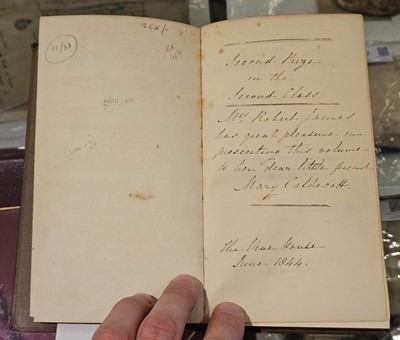 12/33
Second Prize
in the
Second Class
Mrs Robert James
has great pleasure in
presenting this volume
to her dear little friend
Mary Caldecott
The Vine House
June 1844.